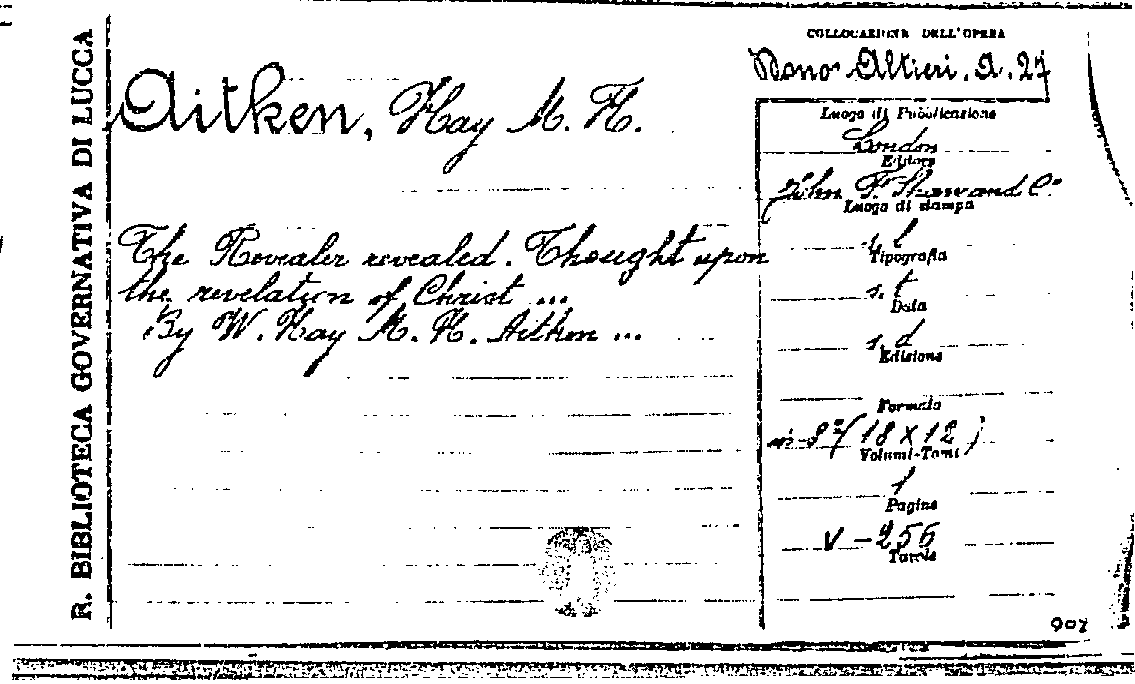 R. BIBLIOTECA GOVERNATIVA DI LUCCA
Aitken, Hay M. H.
The Revealer revealed. Thought upon
the revelation of Christ ...
By W. Hay M. H. Aitken ...
COLLOCAZIONE DELL'OPERA
Altieri. A. 27
Luogo di Pubblicazione
London
Editore
John F. Shaw and C.°
Luogo di stampa
s. l
Tipografia
s. t
Data
s. d
Edizione
Formato
in-8° (18 X 12)
Volumi-Tomi
1
Pagine
V - 256
Tavole
902